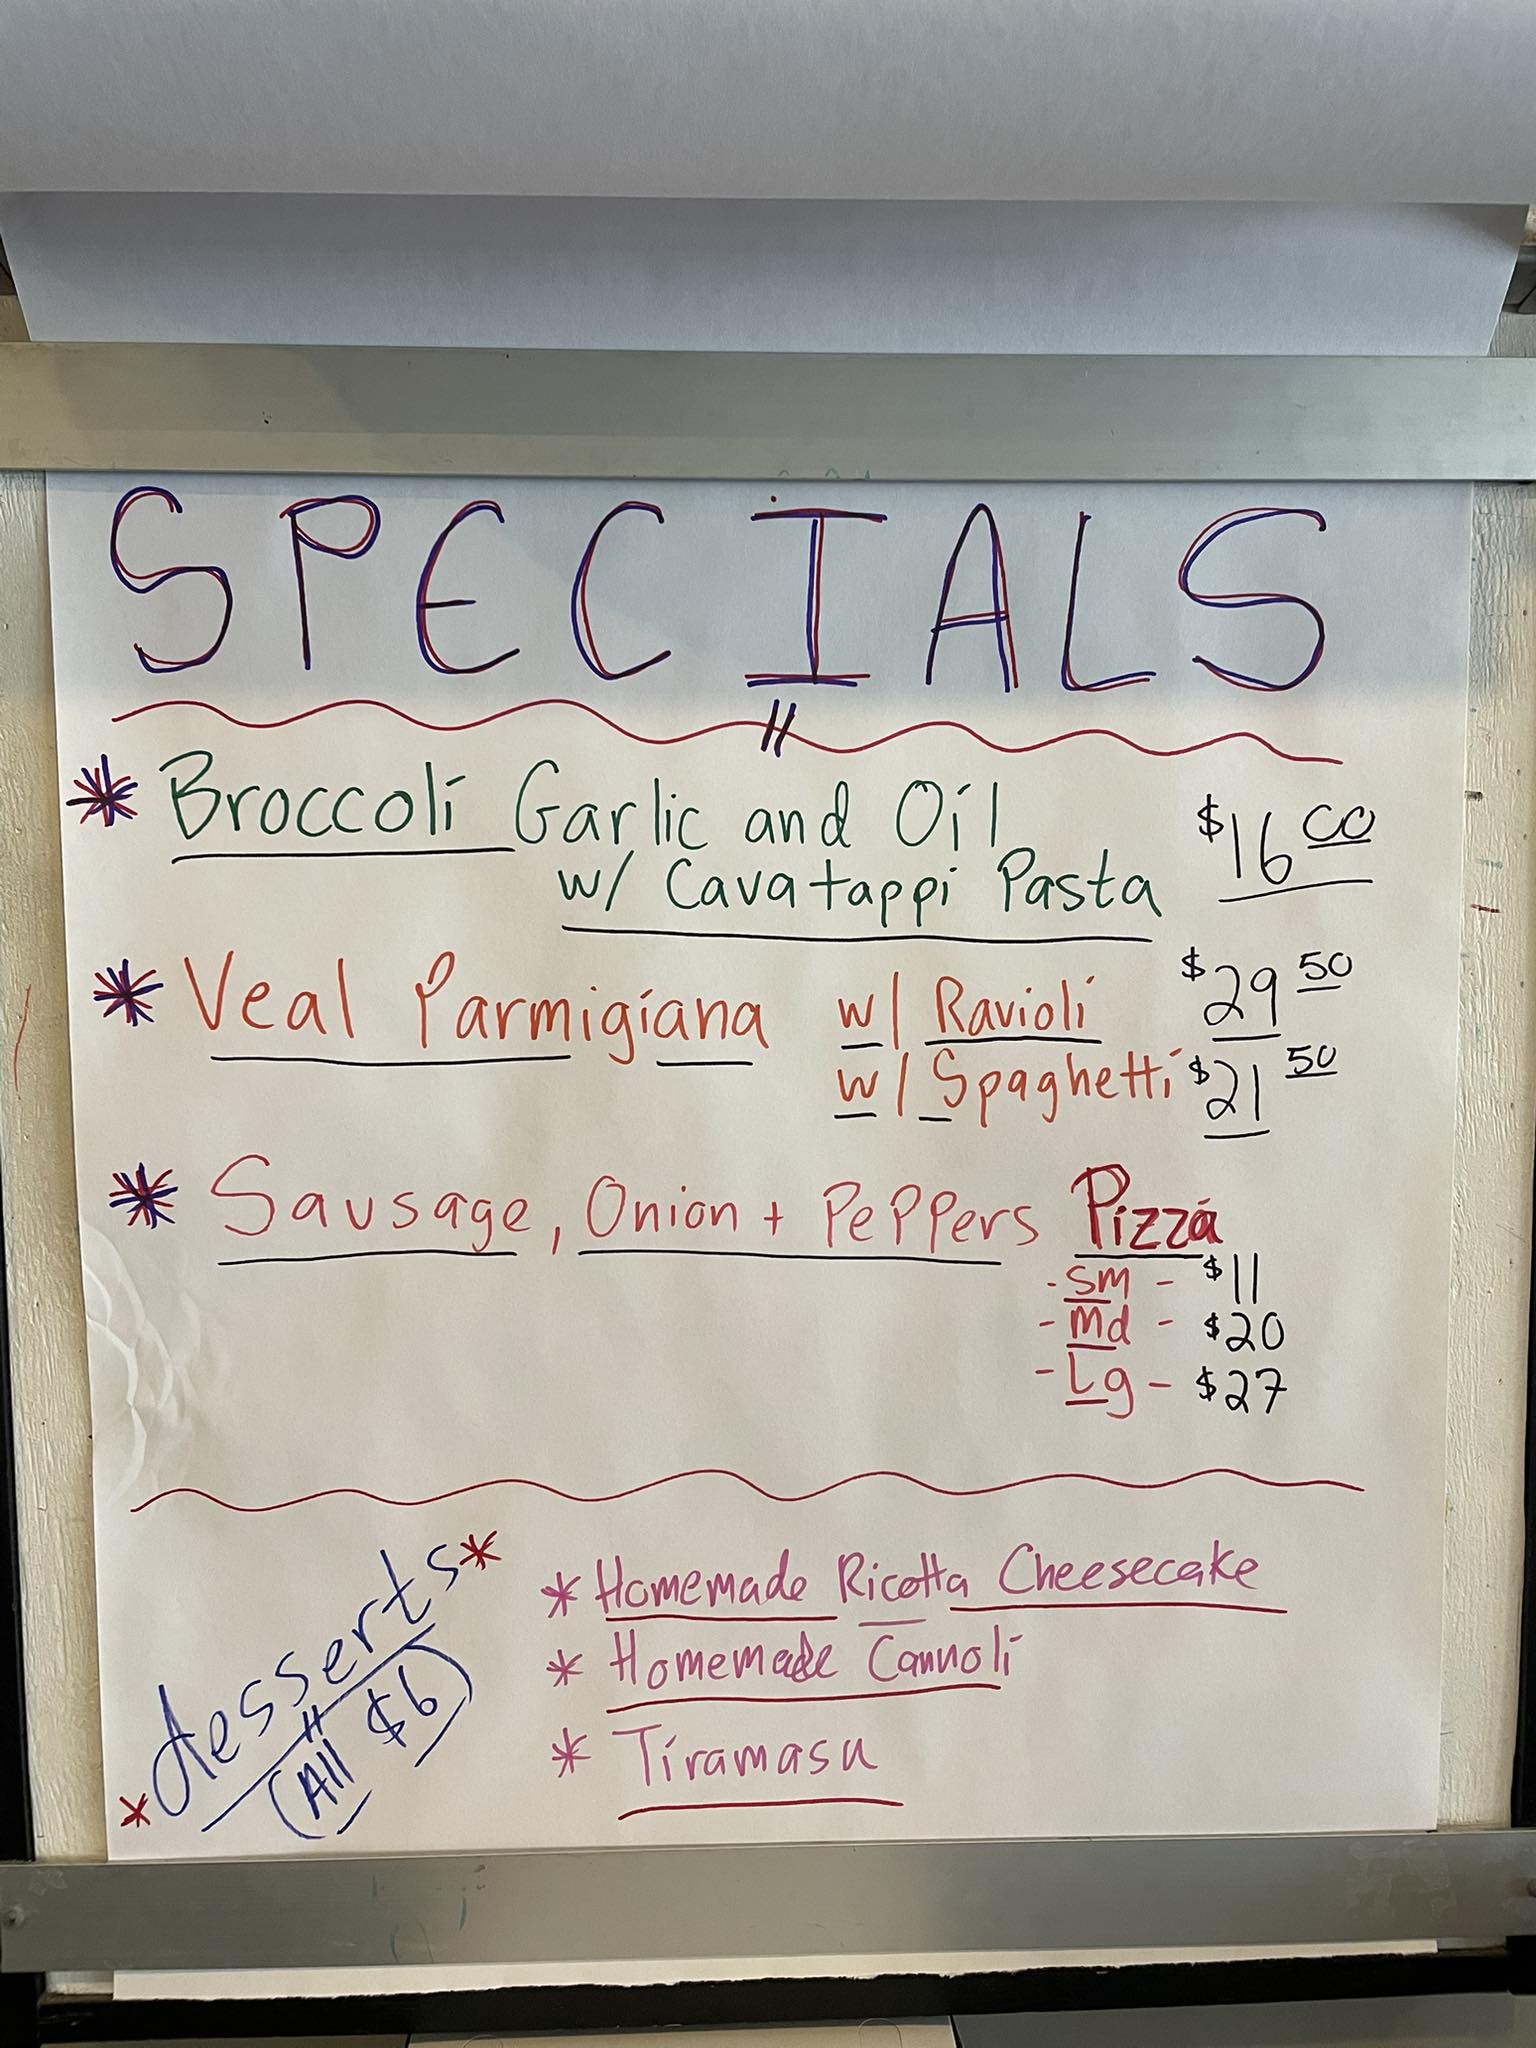 SPECIALS
* Broccoli Garlic and Oil $16 00
w/ Cavatappi Pasta
* Veal Parmigiana w/ Ravioli $29 50
w/ Spaghetti $21 50
* Sausage, Onion + Peppers Pizza
- sm - $11
- Md - $20
- Lg - $27
* desserts *
(All $6)
* Homemade Ricotta Cheesecake
* Homemade Cannoli
* Tiramasu